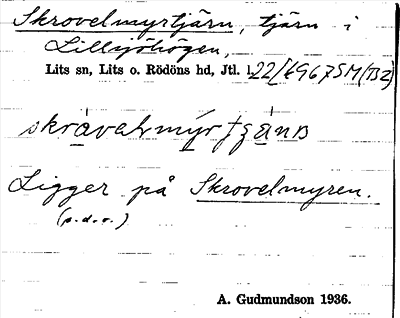 Skrovelmyrtjärn, tjärn i
Lillsjöhögen,
Lits sn, Lits o. Rödöns hd, Jtl.
skràvalmýrtjänn
Ligger på Skrovelmyren.
(p.d.o.)
A. Gudmundson 1936.